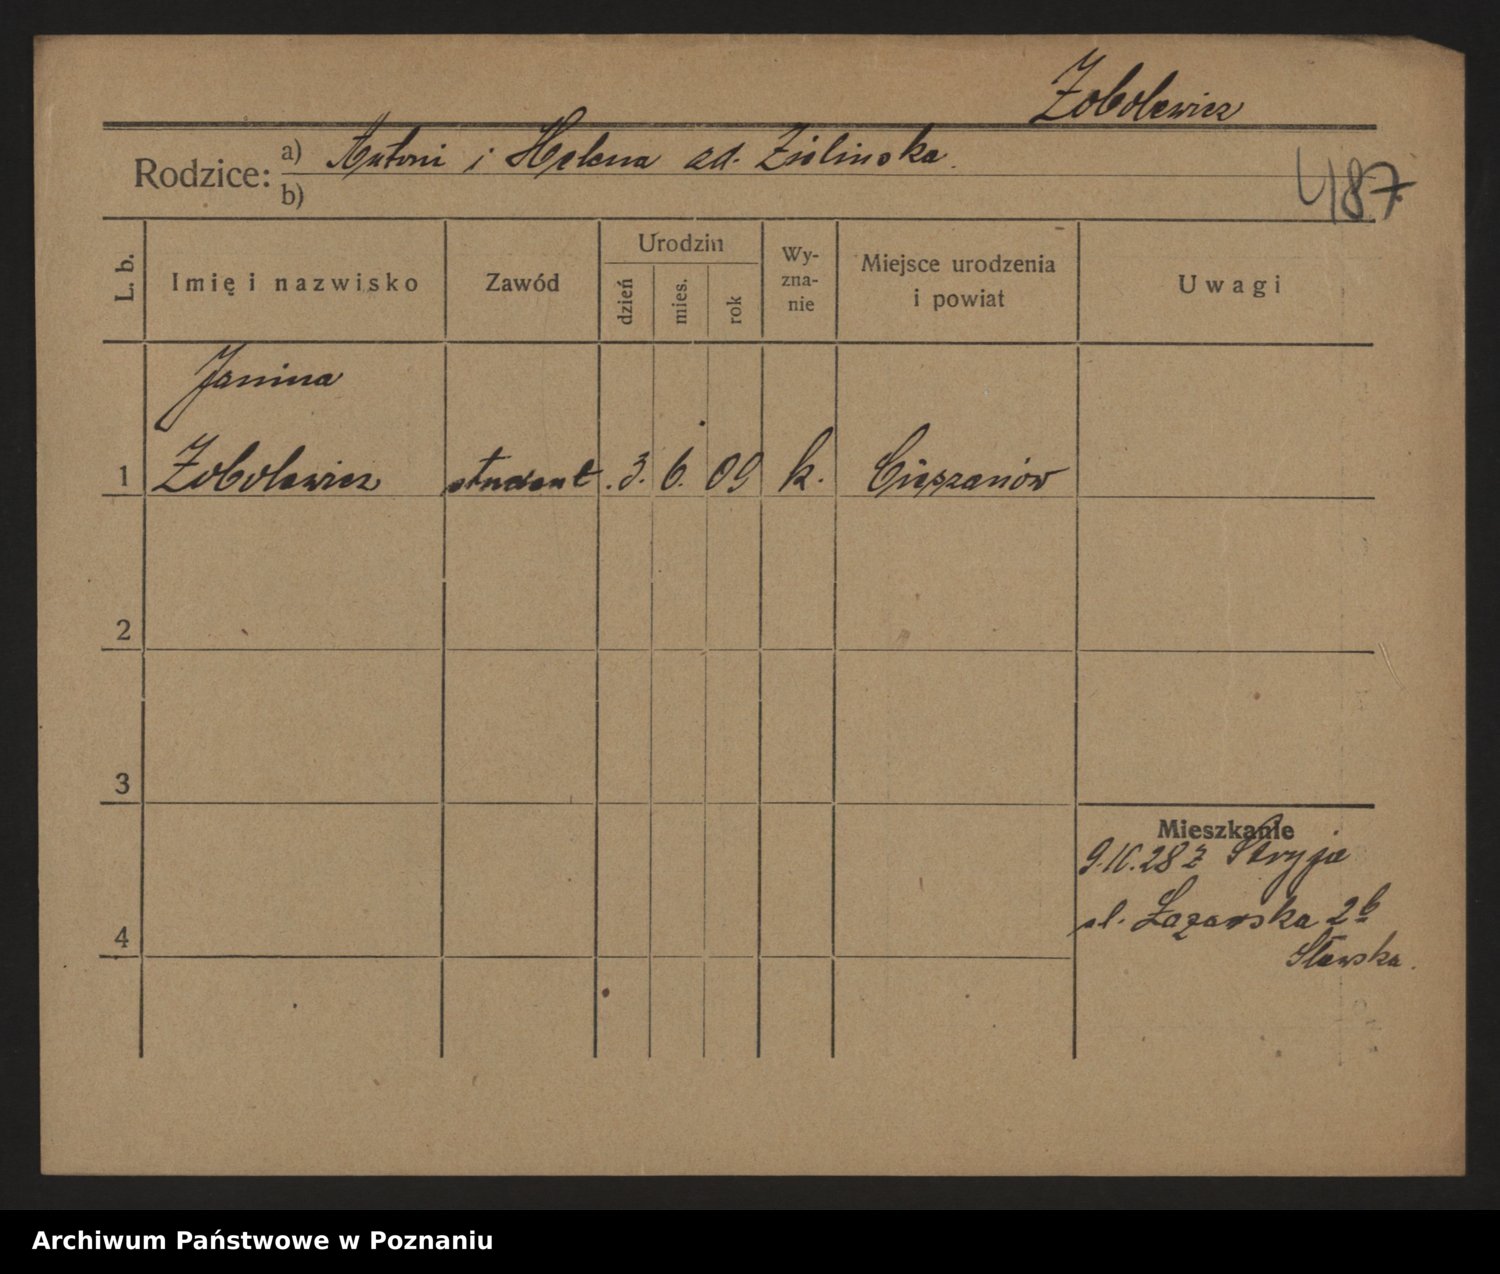 Zobolewicz
Rodzice: a) Antoni i Helena zd. Zielinska.
b)
487.
L. b.
Imię i nazwisko
Zawód
Urodzin
dzień
mies.
rok
Wy-
zna-
nie
Miejsce urodzenia
i powiat
Uwagi
Janina
1 Zobolewicz student. 3. 6. 09 k. Cieszanów
2
3
Mieszkanie
9.IX.28 z Stryja
ul. Łazarska 2b
4
Stawska.
Archiwum Państwowe w Poznaniu